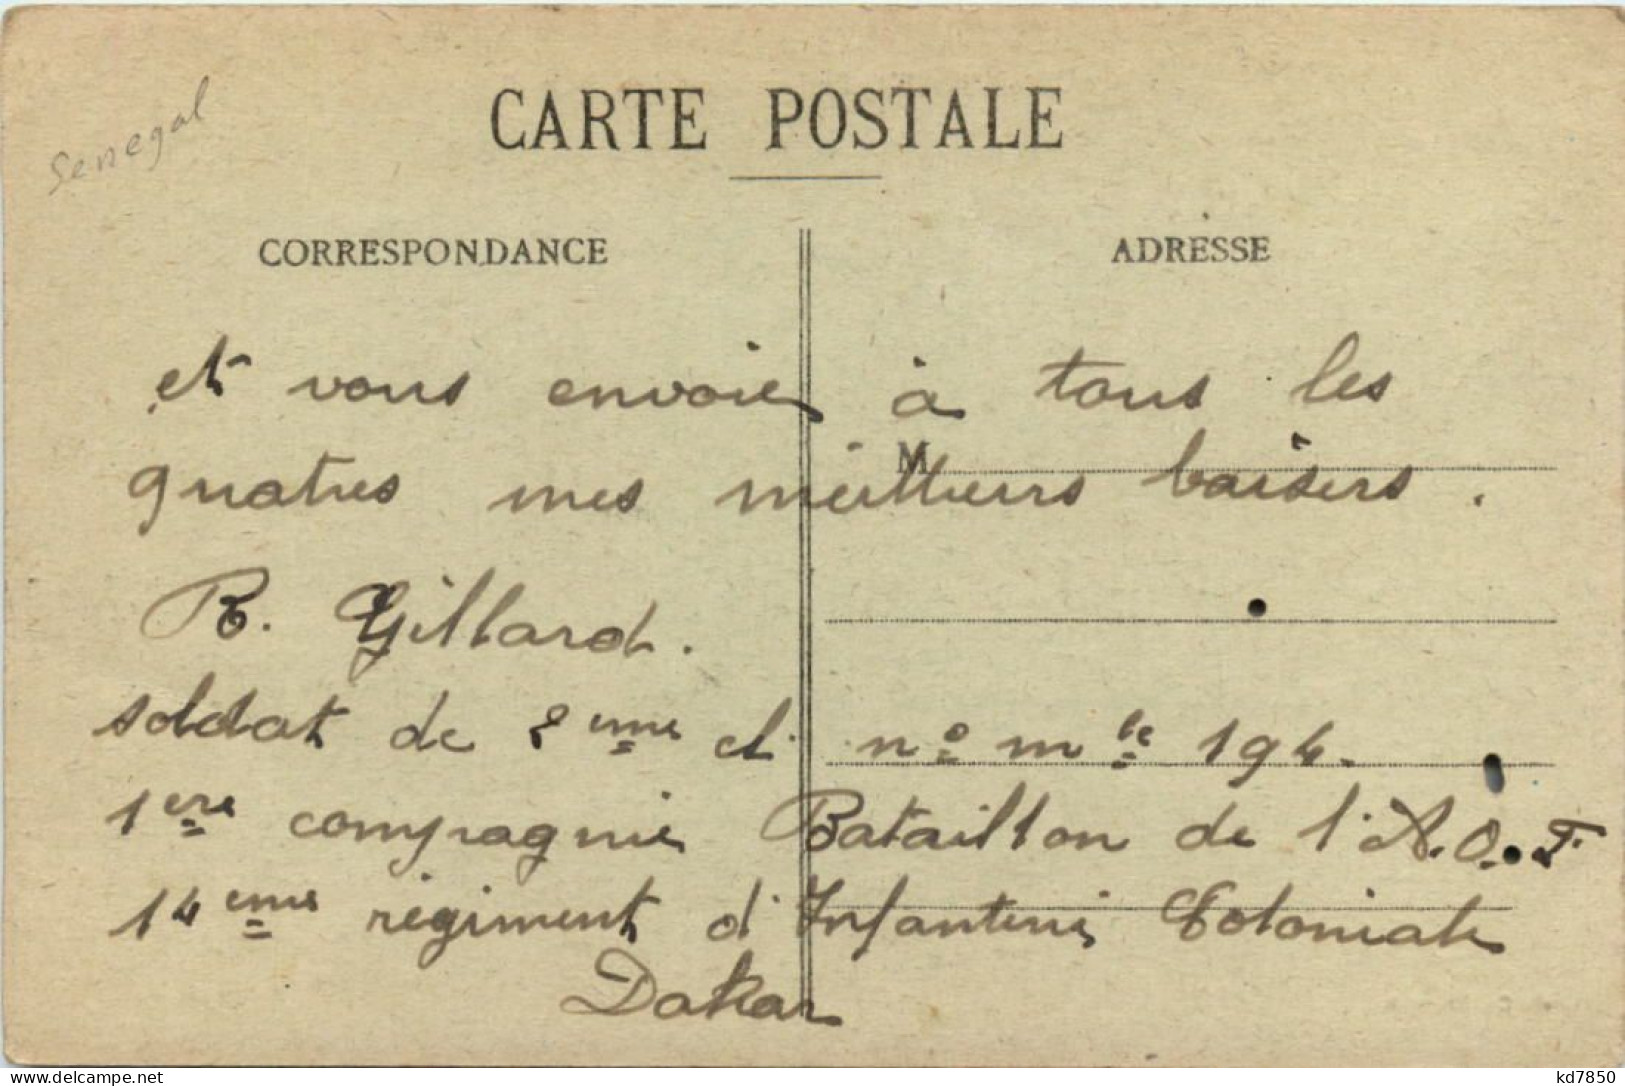 Senegal
CARTE POSTALE
CORRESPONDANCE
ADRESSE
et vous envoie à tous les
M
quatres mes meilleurs baisers.
R. Gillard.
soldat de 2eme cl. no mle 194.
1ere compagnie Bataillon de l'A.O.F
14eme régiment d'Infanterie Coloniale
Dakar
www.delcampe.net
kd7850